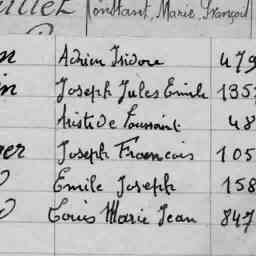 Constant, Marie, François
Adrien Isidore 479
Joseph Jules Emile 135
Aristide Toussaint 48
Joseph Francois 105
Emile Joseph 158
Louis Marie Jean 847